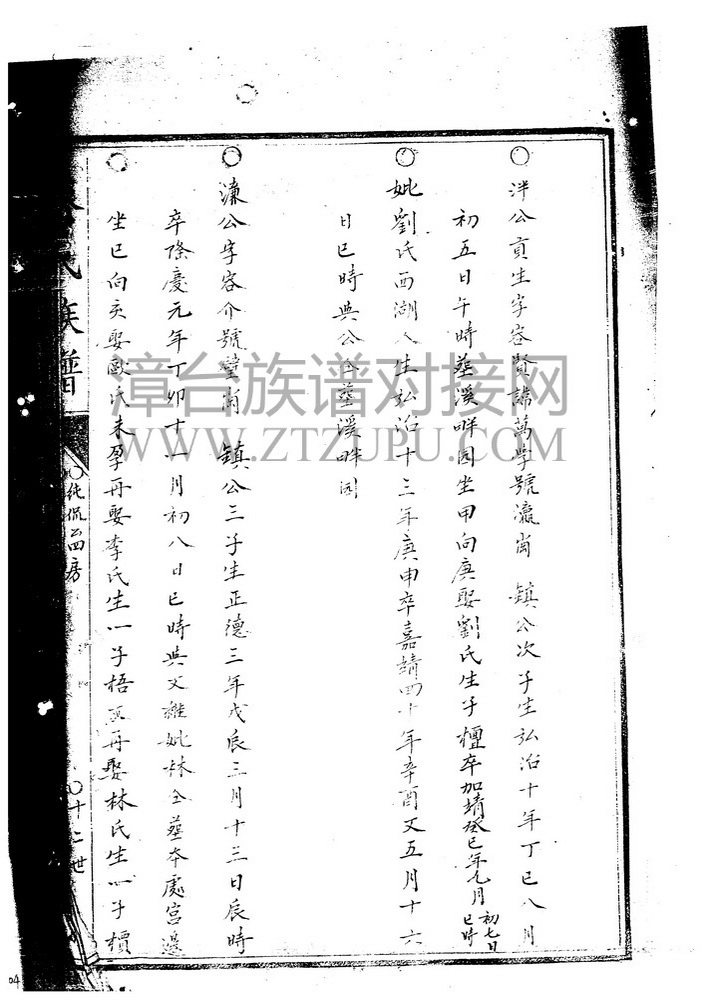 ○泮公貢生字容賢諱萬學號瀛崗　鎮公次子生弘治十年丁巳八月
初五日午時塟溪畔园坐甲向庚娶劉氏生子檀卒加靖癸巳年九月初七日巳時
○妣劉氏西湖人生弘治十三年庚申卒嘉靖四十年辛酉又五月十六
日巳時與公仝塟溪畔园
○濂公字容介號瑩崗　鎮公三子生正德三年戊辰三月十三日辰時
卒隆慶元年丁卯十一月初八日巳時與父維妣林仝塟本處宮邊
○坐巳向亥娶歐氏未孕再娶李氏生一子梧又再娶林氏生一子檟
氏族譜
○純侃公四房
○十二世
漳台族谱对接网
WWW.ZTZUPU.COM
04